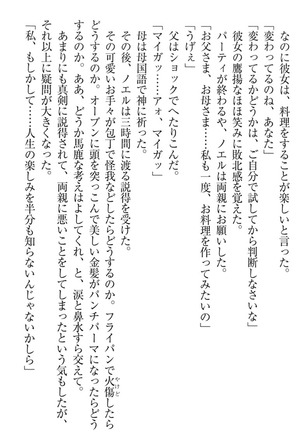 なのに彼女は、料理をすることが楽しいと言った。
「変わってるのね、あなた」
「変わってるかどうかは、ご自分で試してから判断しなさいな」
彼女の鷹揚なほほ笑みに敗北感を覚えた。
パーティが終わるや、ノエルは両親にお願いした。
「お父さま、お母さま……私も一度、お料理を作ってみたいの」
「うげぇ」
父はショックでへたりこんだ。
「マイガッ……アォ、マイガッ」
母は母国語で神に祈った。
その後、ノエルは三時間に渡る説得を受けた。
その可愛いお手々が包丁で怪我などしたらどうするのか。フライパンで火傷したら
どうするのか。オーブンに頭を突っこんで美しい金髪がパンチパーマになったらどう
するのか。ああ、どうか馬鹿な考えはよしてくれ、と、涙と鼻水すら交えて。
あまりにも真剣に説得されて、両親に悪いことをしてしまったという気もしたが、
それ以上に疑問が大きくなった。
「私、もしかして……人生の楽しみを半分も知らないんじゃないかしら」